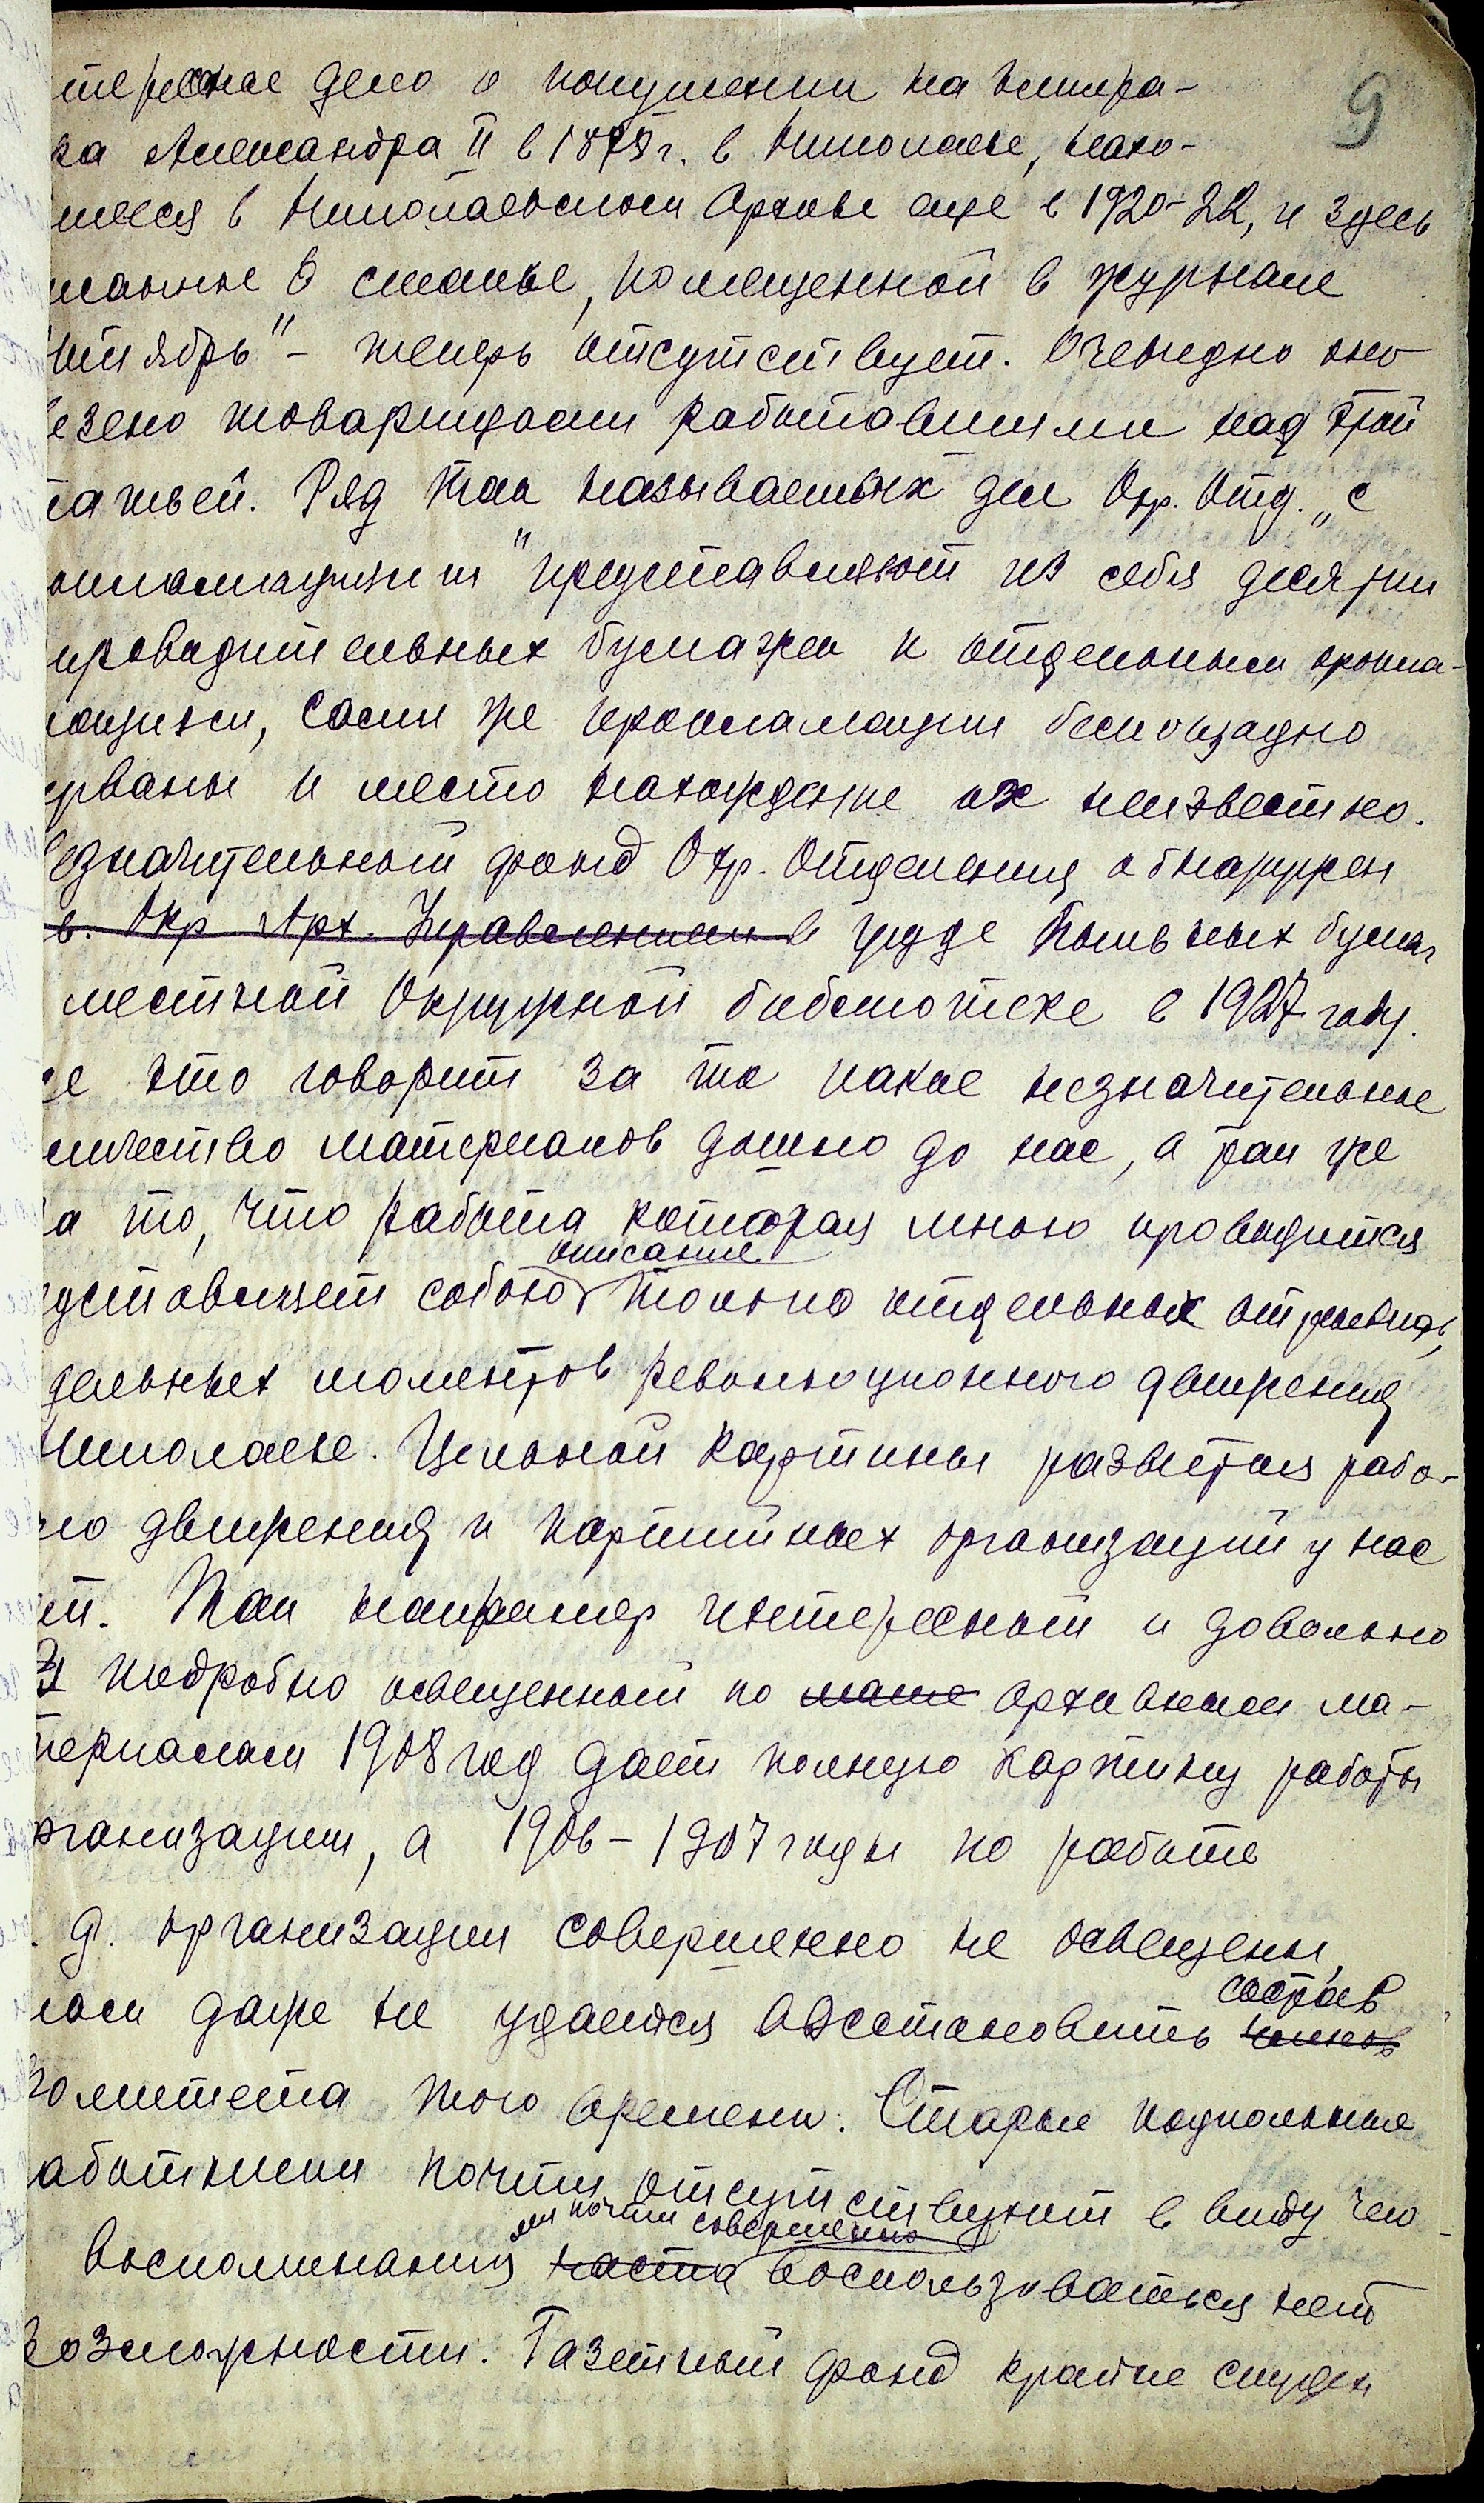 9
тересное дело о покушении на Импера-
ра Александра II в 1878 г. в Николаеве, нахо-
шееся в Николаевском Архиве еще в 1920-22, и здесь
санное в статье, помещенной в журнале
ктябрь" – теперь отсутствует. Очевидно оно
везено товарищами работавшими над этой
татьей. Ряд так называемых дел Охр. Отд. „с
окламациями" представляют из себя десятки
проводительных бумажек к отдельным прокла-
мациям, сами же прокламации беспощадно
рваны и место нахождение их неизвестно.
езначительный фонд Охр. Отделения обнаружен
в. Окр. Арх. Управлением в груде пыльных бумаг
местной Окружной библиотеке в 1927 году.
се это говорит за то какое незначительное
личество материалов дошло до нас, а так же
а то, что работа которая мною проводится
описание
дставляет собою только отдельных отрывков,
дельных моментов революционного движения
Николаеве. Цельной картины развития рабо-
го движения и партийных организаций у нас
ет. Так например интересный и довольно
подробно освещенный по архивным ма-
териалам 1908 год дает полную картину работы
рганизации, а 1906–1907 годы по работе
. д. организации совершенно не освещены,
нам даже не удается восстановить
состав
комитета того времени. Старые подпольные
аботники почти отсутствуют в виду чего
ми почти совершенно
воспоминания воспользоваться нет
возможности. Газетный фонд крайне скуден